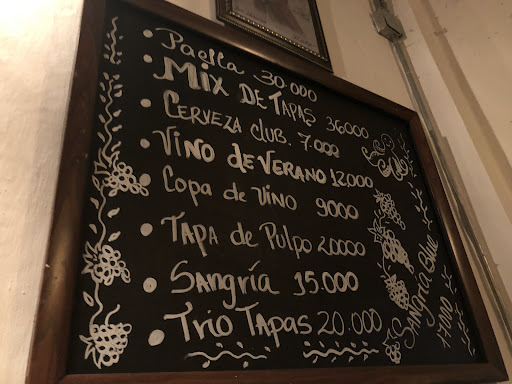 • Paella 30.000
• Mix DE TAPAS 36000
• CERVEZA club. 7.000
• VINO de VERANO 12.000
• Copa de vino 9000
• TAPA de Pulpo 20000
• Sangría 15.000
• Trio TAPAS 20.000
SANGRIA Blue
17000